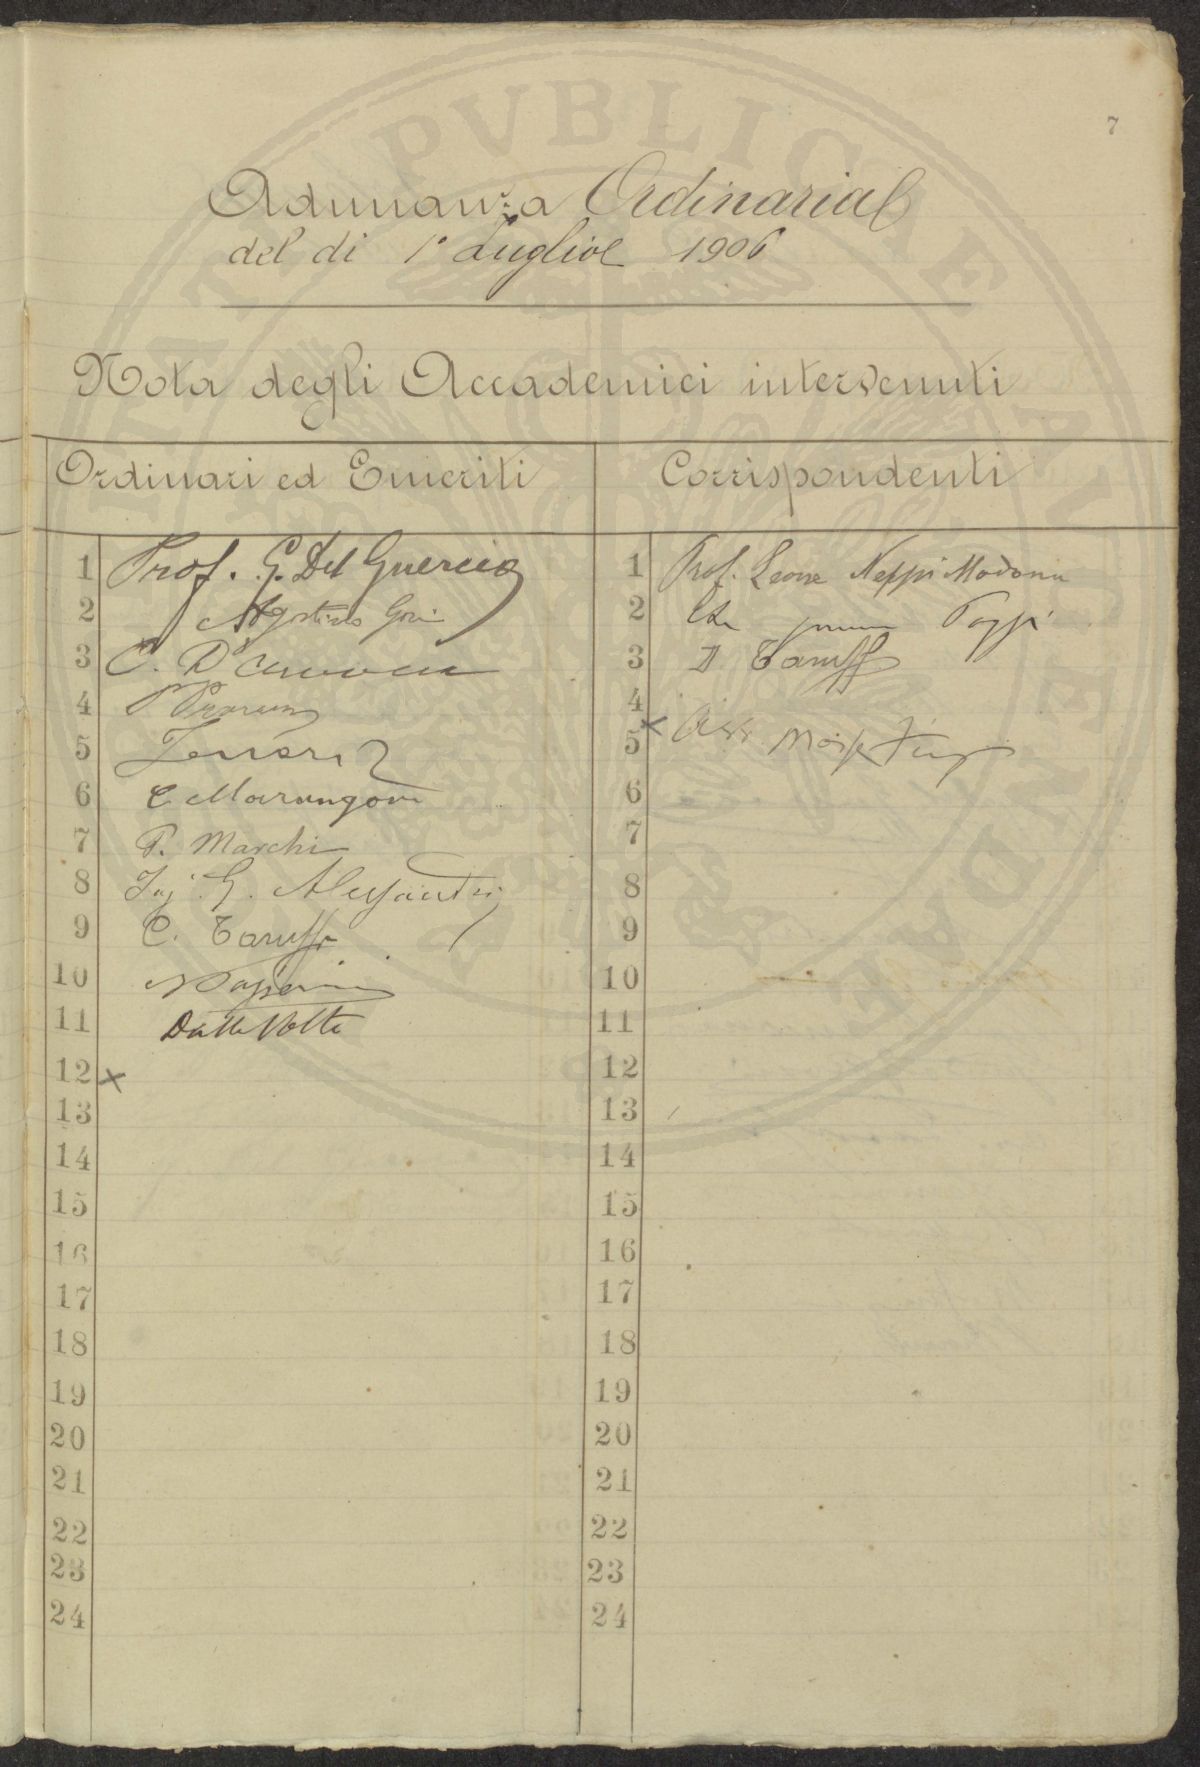 7
Adunanza Ordinaria
del di 1° Luglio 1906
Nota degli Accademici intervenuti
Ordinari ed Emeriti
Corrispondenti
1 Prof. G. Del Guercio
2 Agostino Gori
3 C.
4
5
6 C Marangoni
7 P. Marchi
8 Ing. G. Alessandri
9 C. Taruffi
10 N Passerini
11 Dalla Volta
12 x
13
14
15
16
17
18
19
20
21
22
23
24
1 Prof. Leone Neppi Modona
2
3 D Taruffi
4
5 x
6
7
8
9
10
11
12
13
14
15
16
17
18
19
20
21
22
23
24
PVBLICAE